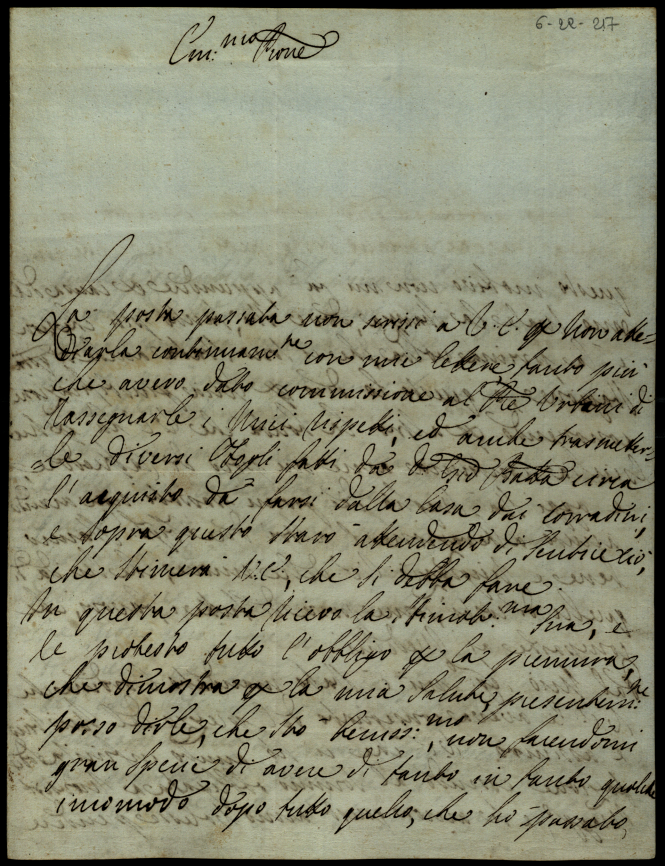 6-22-217
Em:mo Prone
La posta passata non scrissi a V. E. p non atte=
diarla continuam:te con mie lettere tanto più
che avevo dato commissione al Urbani di
rassegnarle i miei rispetti, ed anche trasmetter=
=le diversi fogli fatti da Gio Batta circa
l'acquisto da farsi dalla Casa dai Corradini,
e sopra questo stavo attendendo di sentire ciò,
che stimerà V. E., che si debba fare.
In questa posta ricevo la stimat:ma Sua, e
le protesto tutto l'obbligo p la premura,
che dimostra p la mia salute, presentem:te
posso dirle, che sto beniss:mo, non facendomi
gran specie di avere di tanto in tanto qualche
incomodo dopo tutto quello, che ho passato